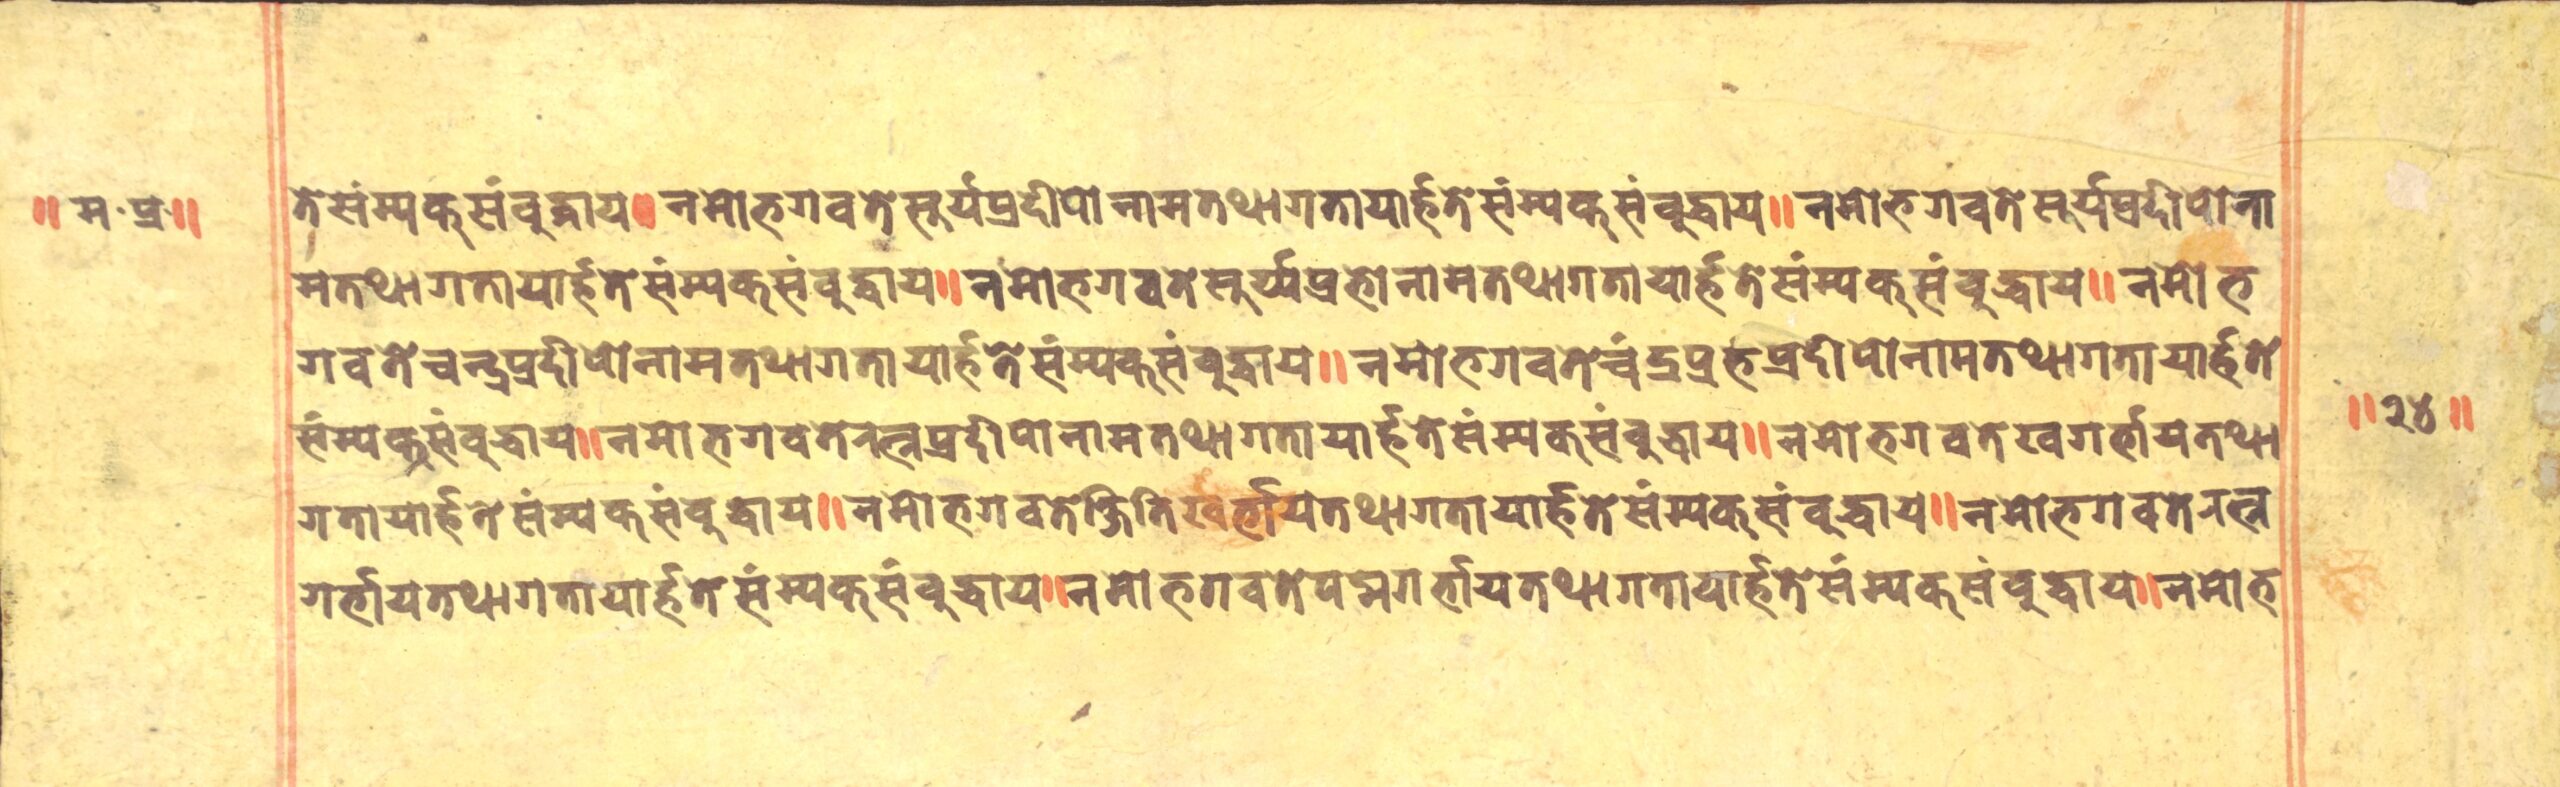 ॥ म प्र ॥
तेसंम्यक्संवुद्धाय॥नमोभगवतेसूर्यप्रदीपोनामतथागतायार्हतेसंम्यक्संवुद्धाय॥नमोभगवतेसूर्यप्रदीपोना
मतथागतायार्हतेसंम्यक्संवुद्धाय॥नमोभगवतेसूर्य्यप्रभोनामतथागतायार्हतेसंम्यक्संवुद्धाय॥नमोभ
गवतेचन्द्रप्रदीपोनामतथागतायार्हतेसंम्यक्संवुद्धाय॥नमोभगवतेचंद्रप्रभप्रदीपोनामतथागतायार्हते
संम्यक्संवुद्धाय॥नमोभगवतेरत्नप्रदीपोनामतथागतायार्हतेसंम्यक्संवुद्धाय॥नमोभगवतेखगर्भायतथा
गतायार्हतेसंम्यक्संवुद्धाय॥नमोभगवतेक्षितिखर्भायतथागतायार्हतेसंम्यक्संवुद्धाय॥नमोभगवतेरत्न
गर्भायतथागतायार्हतेसंम्यक्संवुद्धाय॥नमोभगवतेपद्मगर्भायतथागतायार्हतेसंम्यक्संवुद्धाय॥नमोभ
॥२४॥